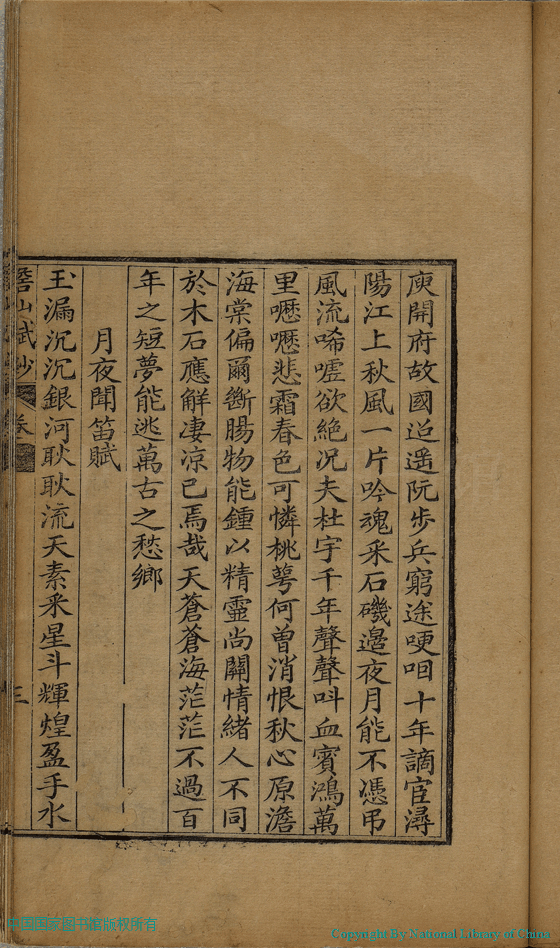 庾開府故國迢遥阮步兵窮途哽咽十年謫宦潯
陽江上秋風一片吟魂采石磯邉夜月能不憑弔
風流唏噓欲絶况夫杜宇千年聲聲呌血賓鴻萬
里嚦嚦悲霜春色可憐桃萼何曽消恨秋心原澹
海棠偏爾斷腸物能鍾以精靈尚關情緒人不同
於木石應觧凄凉已焉哉天蒼蒼海茫茫不過百
年之短夢能逃萬古之愁鄉
月夜聞笛賦
玉漏沉沉銀河耿耿流天素釆星斗輝煌盈手水
山賦鈔 卷 三
中国国家图书馆版权所有
Copyright By National Library of China